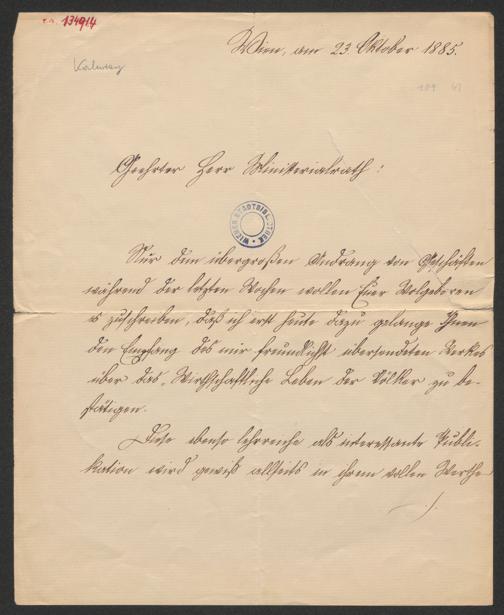 134914
Kalnoky
Wien, am 23. Oktober 1885.
109
Geehrter Herr Ministerialrath!
WIENER STADTBIBLIOTHEK
Nur dem übergroßen Andrang von Geschäften
während der letzten Wochen wollen Euer Wolgeboren
es zuschreiben, daß ich erst heute dazu gelange Ihnen
den Empfang des mir freundlichst übersendeten Werkes
über das „Wirthschaftliche Leben der Völker zu be-
stätigen.
Diese ebenso lehrreiche als interessante Publi-
kation wird gewiß allseits in ihrem vollen Werthe